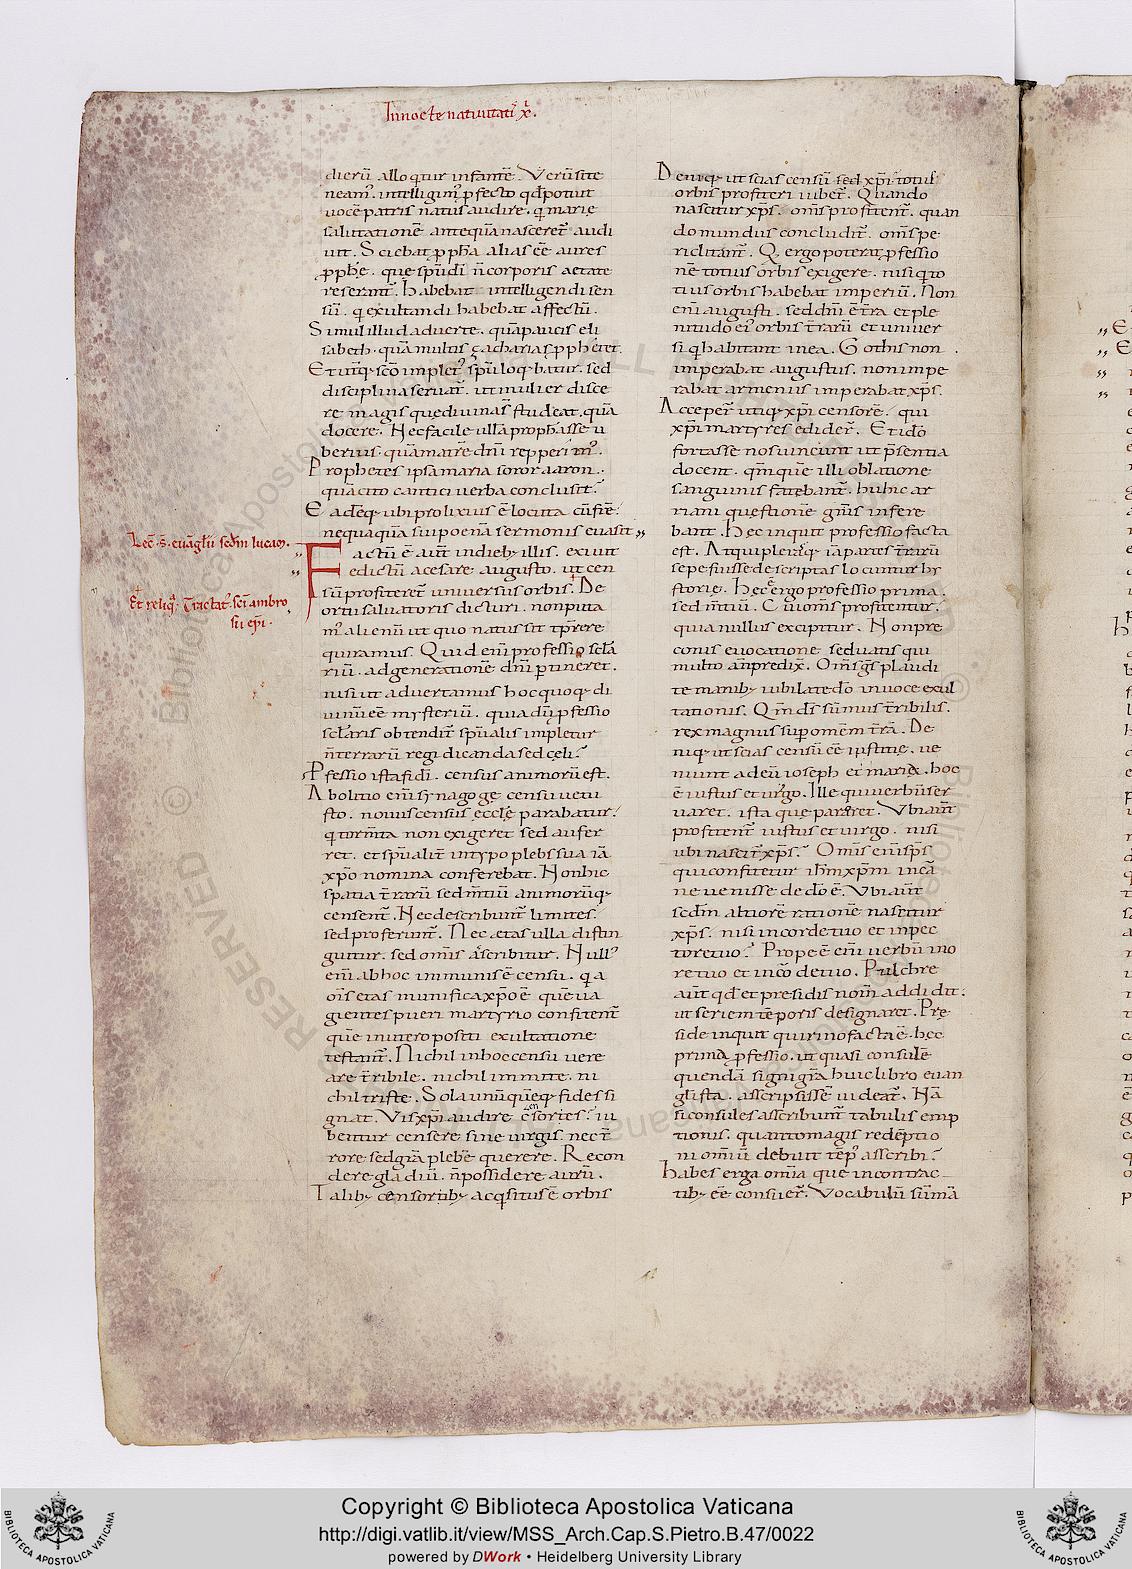 In nocte nativitatis x̄.
dierū alloqtur infantē. Verū si te
neam᾽. intelligim᾽ p̱fecto qđ potuit
uocē patris natus audire. q̱ marię
salutationē antequā nasceret̄ audi
uit. Sciebat p̱pħa alias eē aures
p̱pħę. que sp̄u dī n̄ corporis aetate
reserant̄. Habebat intelligendi sen
sū. q̱ exultandi habebat affectū.
Simul illud aduerte. quā paucis eli
sabeth. quā multis zacharias p̱phetet.
Et utiq; sc̄o implet᾽ sp̄u loq̱batur. sed
disciplina seruat̄. ut mulier disce
re magis que diuina s̄t studeat. quā
docere. Nec facile ullā prophasse u
berius quā matrē dn̄i repperim᾽.
Prophetes ipsa maria soror aaron.
quā cito cantici uerba conclusit?
Eadēq; ubi prolixius ē locuta cū frē.
nequaquā sui poenā sermonis euasit
Lec̄. s. euāglii scđm lucam.
Factū ē aut̄ in dieb; illis. exiit
edictū a cesare augusto. ut cen
sū profiteret̄ uniuersus orbis. De
Et reliq̄. Tractat᾽ sc̄i ambro
sii ep̄i.
ortu saluatoris dicturi. non puta
m᾽ alienū ut quo natus sit tp̄r ere
quiramus. Quid enī professio sećla
riū. ad generationē dn̄i p̱tineret.
nisi ut aduertamus hoc quoq; di
uinū eē mysteriū. quia dū p̱fessio
secłaris obtendit̄ sp̄ualis impletur
n̄ terrarū regi dicanda sed cęli?
P̱fessio ista fidī. census animorū est.
Abolitio enī synagogę censu uetu
sto. nouus census ecclę parabatur.
q̱ torm̄ta non exigeret sed aufer
ret. et sp̄ualit̄ in typo plebs sua iā
xp̄o nomina conferebat. Non hic
spatia t̄rarū sed m̄tiū animorūq;
censent̄. Nec describunt̄ limites.
sed proferunt̄. Nec ętas ulla distin
guitur. sed om̄s ascribitur. Null᾽
enī ab hoc immunis ē censu. q̱a
om̄s etas munifica xp̄o ē quē ua
gientes pueri martyrio confitent̄
quē in utero positi exultatione
testant̄. Nichil in hoc censu uere
are t̄ribile. nichil immite. ni
chil triste. Sola unūquēq; fides si
gnat. Vis xp̄i audire cēsores? iu
bentur censere sine uirgis. nec t̄
rore sed gr̄a plebē querere. Recon
dere gladiū. n̄ possidere aurū.
Talib; censorib; acq̱situs ē orbis
Deniq; ut scias censū sed xp̄i. totus
orbis profiteri iubet̄. Quando
nascitur xp̄s. om̄s profitent̄. quan
do mundus concludit̄. om̄s pe
riclitant̄. Q̱ ergo poterat p̱fessio
nē totius orbis exigere. nisi q̱ to
tius orbis habebat imperiū. Non
enī augusti. sed dn̄i ē t̄ra et ple
nitudo ei᾽ orbis t̄rarū et uniuer
si q̱ habitant in ea. Gothis non
imperabat augustus. non impe
rabat armeniis imperabat xp̄s.
Acceper̄ utiq; xp̄i censorē. qui
xp̄i martyres edider̄. Et ido
fortasse nos uincunt ut p̄sentia
docent. qm̄ quē illi oblatione
sanguinis fatebant̄. huhic ar
riani quęstionē gn̄is infere
bant. Hęc inquit professio facta
est. Atqui plerasq; iā partes t̄rarū
sepe fuisse descriptas locuntur hy
storie. Hęc ē ergo professio prima.
sed m̄tiū. Cui om̄s profitentur.
quia nullus excipitur. Non prę
conis euocatione sed uatis qui
multo an̄ predix̄. Om̄s gs̄ plaudi
te manib; iubilate dō in uoce exul
tationis. Qm̄ dn̄s sūmus t̄ribilis.
rex magnus sup̱ omēm t̄rā. De
niq; ut scias censū eē iustitię. ue
niunt ad eū ioseph et maria. hoc
ē iustus et uirgo. Ille qui uerbū ser
uaret. ista que pareret. Vbi aut̄
profitent̄ iustus et uirgo. nisi
ubi nascit̄ xp̄s? Om̄s enī sp̄s
qui confitetur ihm̄ xp̄m in ca
ne uenisse de dō ē. Vbi aut̄
scđm altiorē rationē nascitur
xp̄s. nisi in corde tuo et in pec
tore tuo? Prope ē enī uerbū in o
re tuo et in cō de tuo. Pulchre
aut̄ qđ et presidis nom̄ addidit.
ut seriem tēporis designaret. Prę
side inquit quirino facta ē hec
prima p̱fessio. ut quasi consulē
quendā signi gr̄a huic libro euan
glista. asscripsisse uideat̄. Nā
si consules asscribunt̄ tabulis emp
tionis. quanto magis redēptio
ni omniū debuit tēp᾽ asscribi?
Habes ergo om̄ia que in contrac
tib; eē consuer̄. Vocabulū sūma
Copyright © Biblioteca Apostolica Vaticana
http://digi.vatlib.it/view/MSS_Arch.Cap.S.Pietro.B.47/0022
powered by DWork • Heidelberg University Library